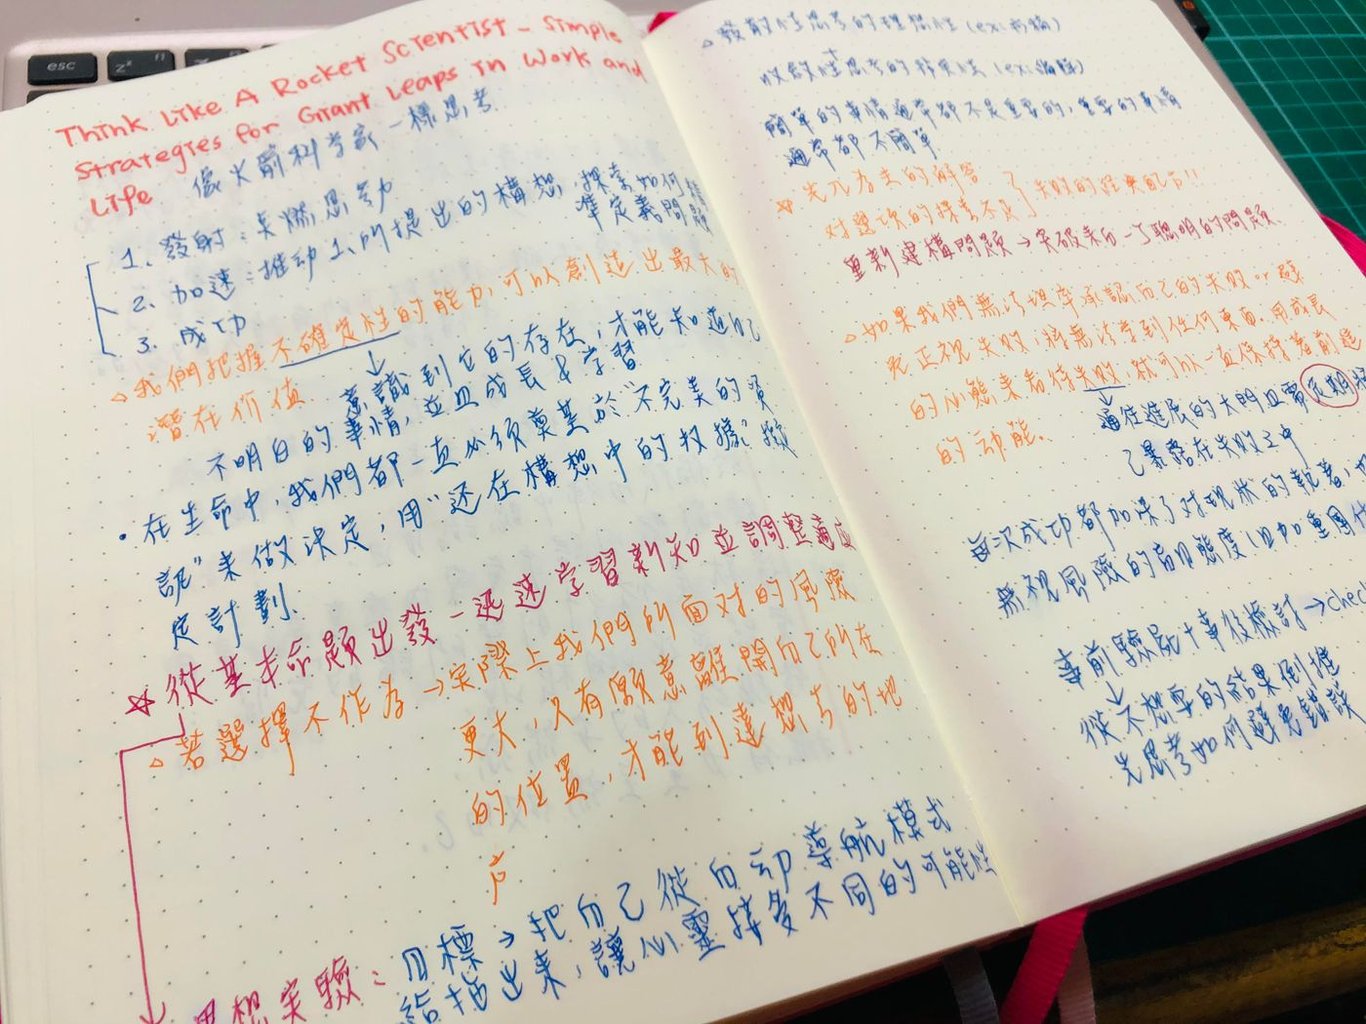 esc
Think Like A Rocket Scientist - Simple
Strategies for Giant Leaps In Work and
Life 像火箭科学家一樣思考
1、發射：点燃思动
2、加速：推动1.所提出的構想，探索如何精
準定義問題
3、成功
我們把握不確定性的能力，可以創造出最大的
潛在价值
意識到它的存在，才能知道自己
不明白的事情，並且成長&学習
在生命中，我們都一直必须奠基於"不完美的資
訊"来做決定，用"还在構想中的数據"
定計劃.
☆ 從基本命題出發－迅速学習新知並調整適应
若選擇不作为→实際上我們所面对的風險
更大，只有願意離開自己所在
的位置，才能到達想去的地
方
思想实驗：目標→把自己從自动導航模式
給拉出来，讓心靈接受不同的可能性
發散性思考的理想性 (ex:
收斂性思考的務实性 (ex:
簡单的事情通常都不是重要的，重要的事情
通常都不簡单
先入为主的解答
对選項的探索不足
失敗的經典配方!!
重新建構問題→突破来自一个聰明的問題.
如果我們無法坦率承認自己的失敗or
正視失敗，將無法学到任何東西，用成長
的心態来看待失敗，就可以一直保持着前進
的动能。
通往進展的大門且需定期
己暴露在失敗之中
每次成功都加深了对现狀的執著，
無視風險的自目態度(且加重
事前驗屍+事後檢討→chec
從不想要的結果倒推
先思考如何避免錯誤